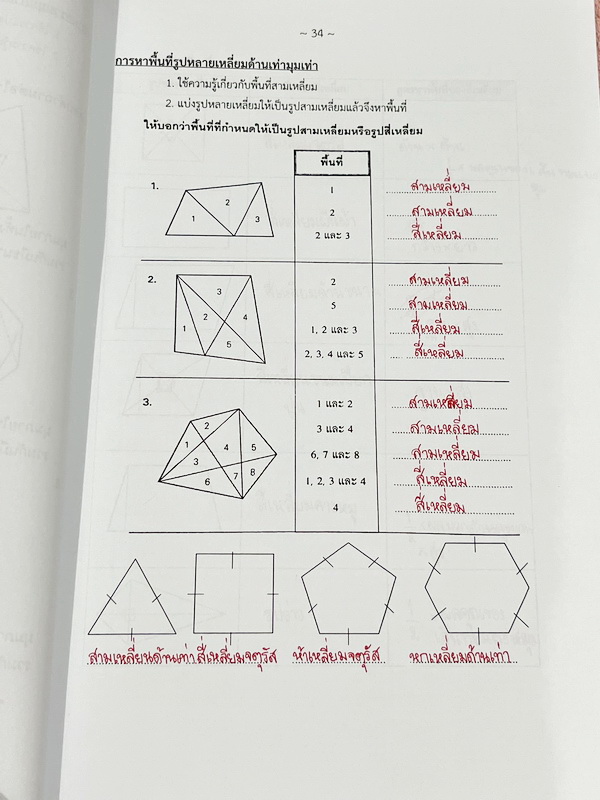 ~ 34 ~
การหาพื้นที่รูปหลายเหลี่ยมด้านเท่ามุมเท่า
1. ใช้ความรู้เกี่ยวกับพื้นที่สามเหลี่ยม
2. แบ่งรูปหลายเหลี่ยมให้เป็นรูปสามเหลี่ยมแล้วจึงหาพื้นที่
ให้บอกว่าพื้นที่ที่กำหนดให้เป็นรูปสามเหลี่ยมหรือรูปสี่เหลี่ยม
พื้นที่
1.
1 2 3
1 สามเหลี่ยม
2 สามเหลี่ยม
2 และ 3 สี่เหลี่ยม
2.
3
1 2 4
5
2 สามเหลี่ยม
5 สามเหลี่ยม
1, 2 และ 3 สี่เหลี่ยม
2, 3, 4 และ 5 สี่เหลี่ยม
3.
2
1 4 5
3
6 7 8
1 และ 2 สามเหลี่ยม
3 และ 4 สามเหลี่ยม
6, 7 และ 8 สามเหลี่ยม
1, 2, 3 และ 4 สี่เหลี่ยม
4 สี่เหลี่ยม
สามเหลี่ยนด้านเท่า สี่เหลี่ยมจตุรัส ห้าเหลี่ยมจตุรัส หกเหลี่ยมด้านเท่า